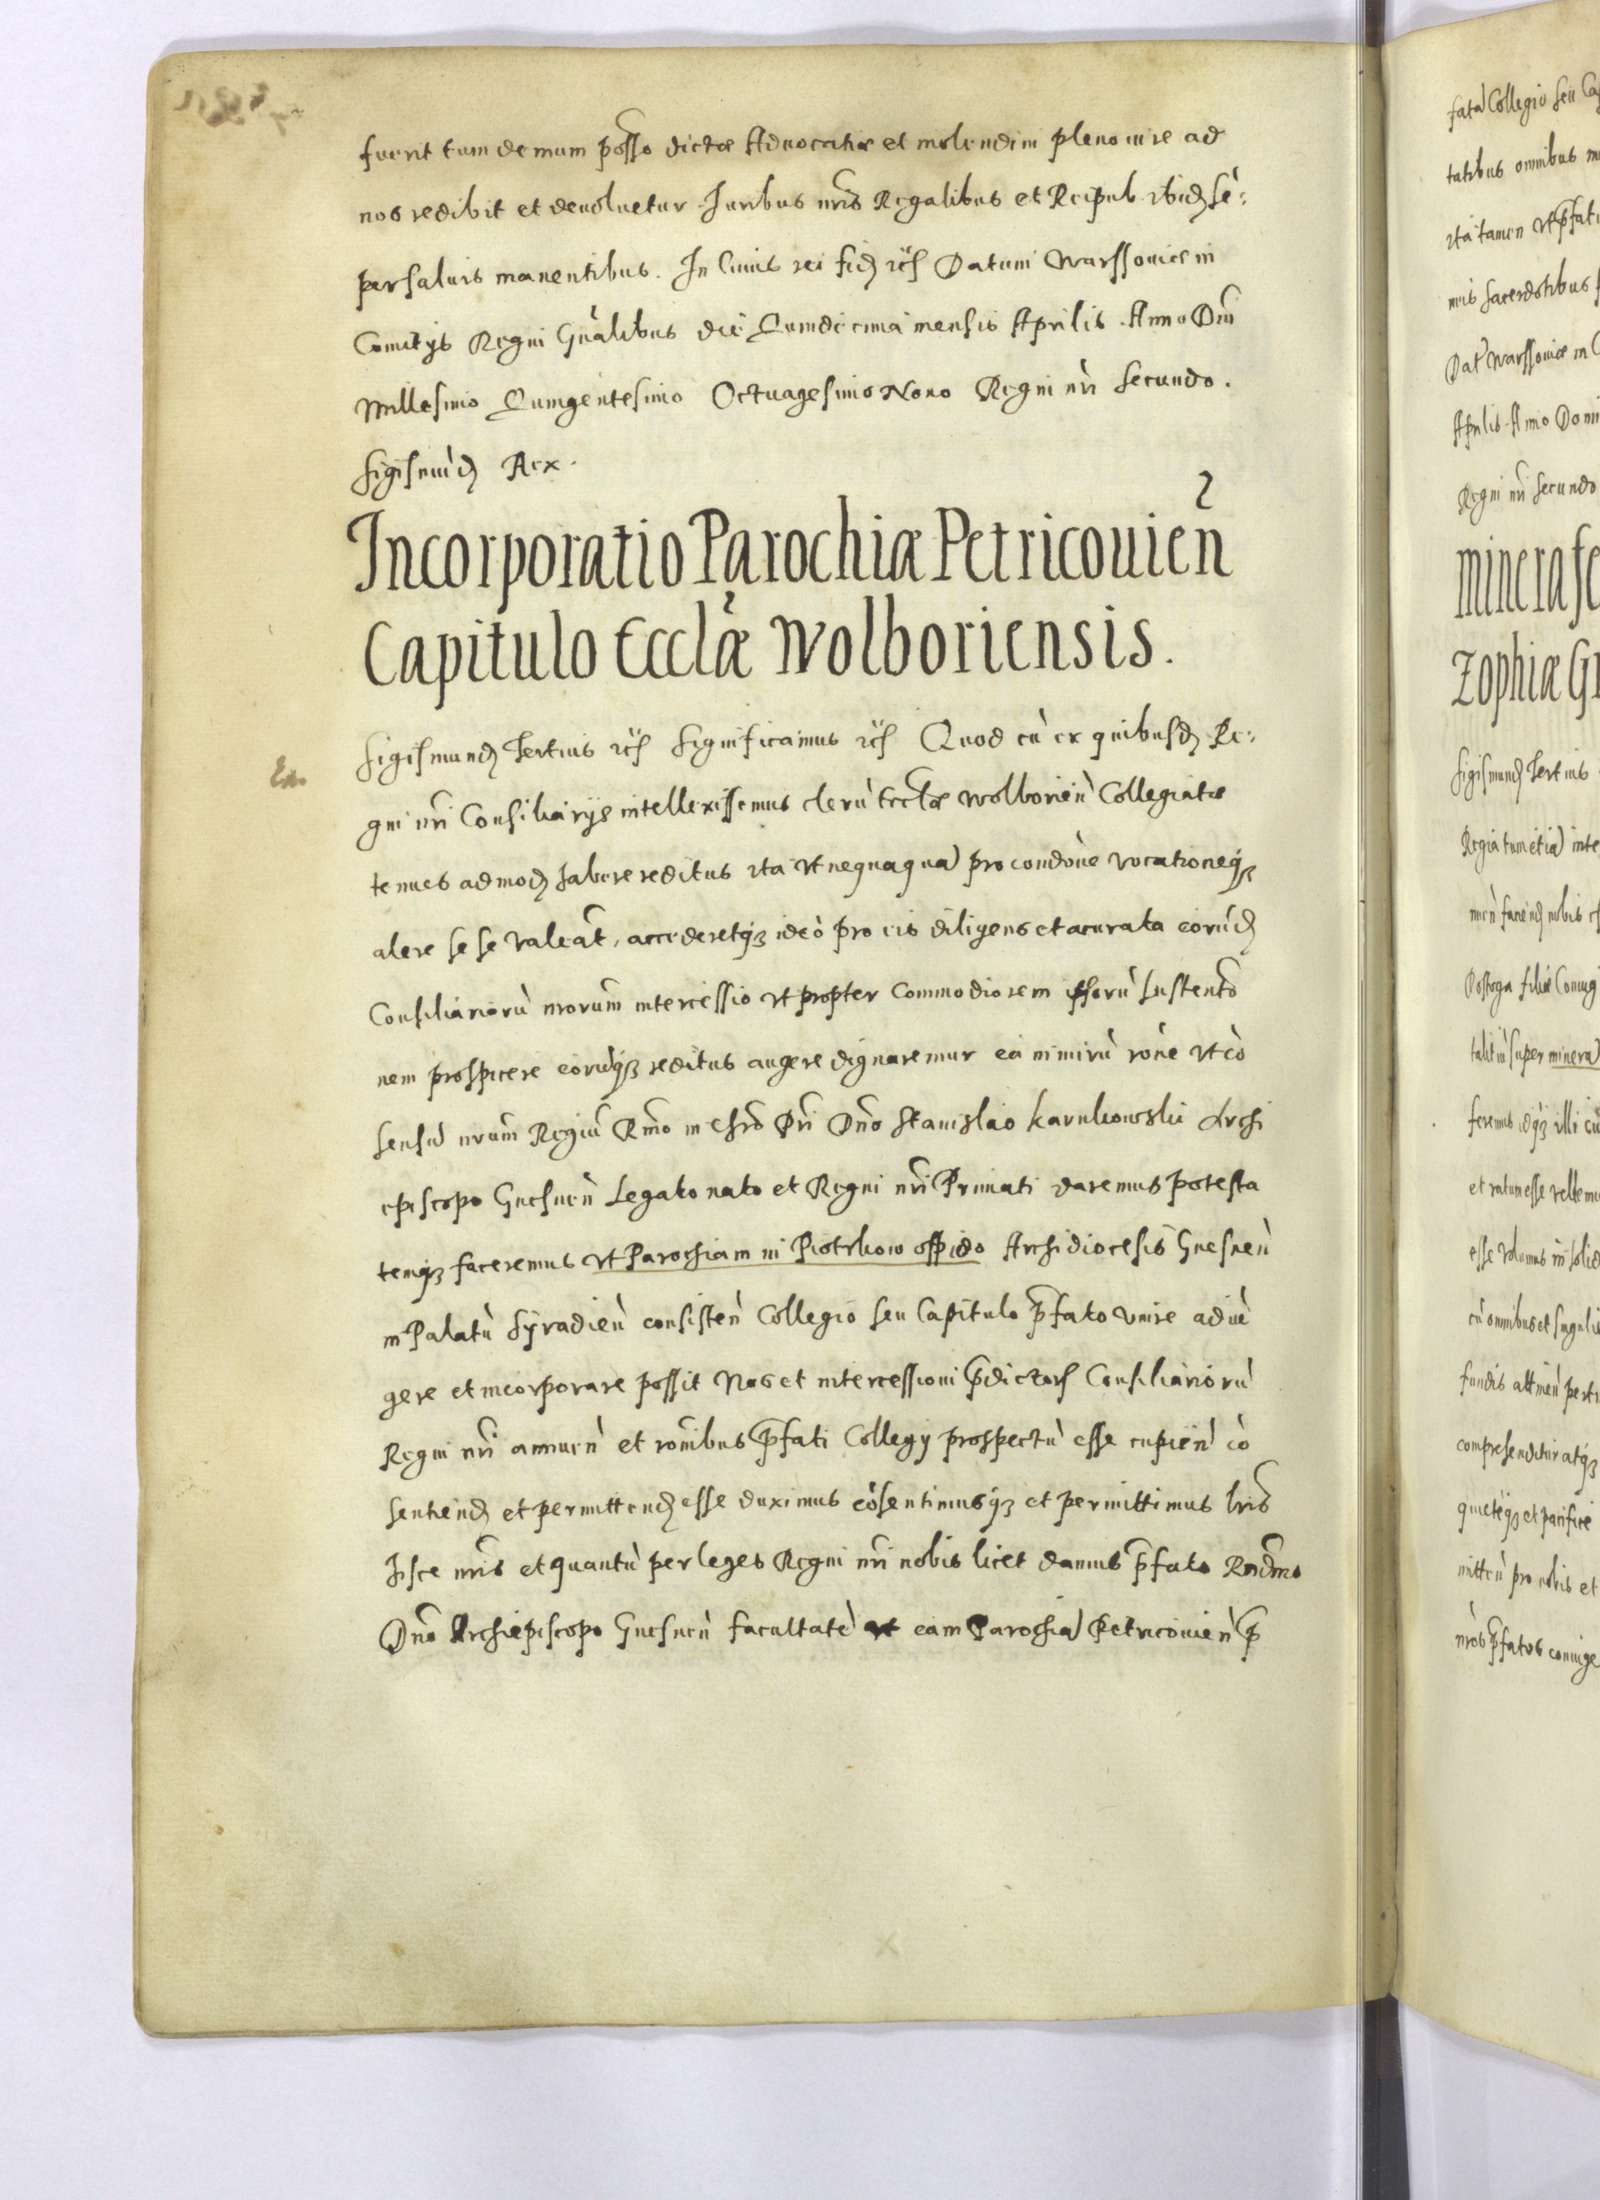 fuerit tum demum posso dictæ Aduocatiæ et molendini pleno iure ad
nos redibit et deuoluetur. Juribus nris Regalibus et Reipub ibid sē:
per saluis manentibus. In Cuius rei fid etc Datum Warssouiæ in
Comitijs Regni Gnalibus die Quindecima mensis Aprilis. Anno Dni
Millesimo Quingentesimo Octuagesimo Nono Regni nri secundo.
Sigismūd Rex.
Incorporatio Parochiæ Petricouien
Capitulo Ecclæ Wolboriensis.
Sigismund Tertius etc Significamus etc Quod cù ex quibusd Re:
gni nri Consiliarijs intellexissemus clerù Ecclæ Wolborien Collegiatæ
tenues admod habere reditus ita vt nequaquā pro condone vocationeq3
alere se se valeāt, accederetq3 ideò pro eis diligens et acurata eorūd
Consiliariorù nrorum intercessio vt propter Commodiorem ipsorù sustento
nem prospicere eorūq3 reditus augere dignaremur ea nimirù rone vt cò
sensū nrum Regiū Rmo in Chro Pri Dno Stanislao Karnkowski Archi
episcopo Gnesnen Legato nato et Regni nri Primati daremus potesta
temq3 faceremus vt Parochiam in Piotrkow oppido Archidiocesis Gnesnen
in Palatù Syradien consisten Collegio seu Capitulo pfato vnire adiū
gere et incorporare possit Nos et intercessioni pdictors Consiliariorù
Regni nri annuen et ronibus pfati Collegij prospectù esse cupien cò
sentiend et permittend esse duximus cōsentimusq3 et permittimus lris
hisce nris et quantù per leges Regni nri nobis licet damus pfato Rndmo
Dno Archiepiscopo Gnesnen facultatē vt eam Parochiā Petricouien p
fatā Collegio seu Cap
tatibus omnibus
ita tamen vt pfati
mis sacerdotibus
Dat Warssouiæ in C
Aprilis. Anno Domi
Regni nri secundo
minera fe
Zophiæ Gr
Sigismund Tertius
Regia tum etiā inte
nobis
filiæ Coniug
super minerā
feremus idq3 illi cù
et ratum esse velle
esse volumus in solid
cù omnibus et singulis
fundis attinen perti
comprehenditur atq3
quieteq3 et pacifice
mitten pro nobis et
nros pfatos coniuge